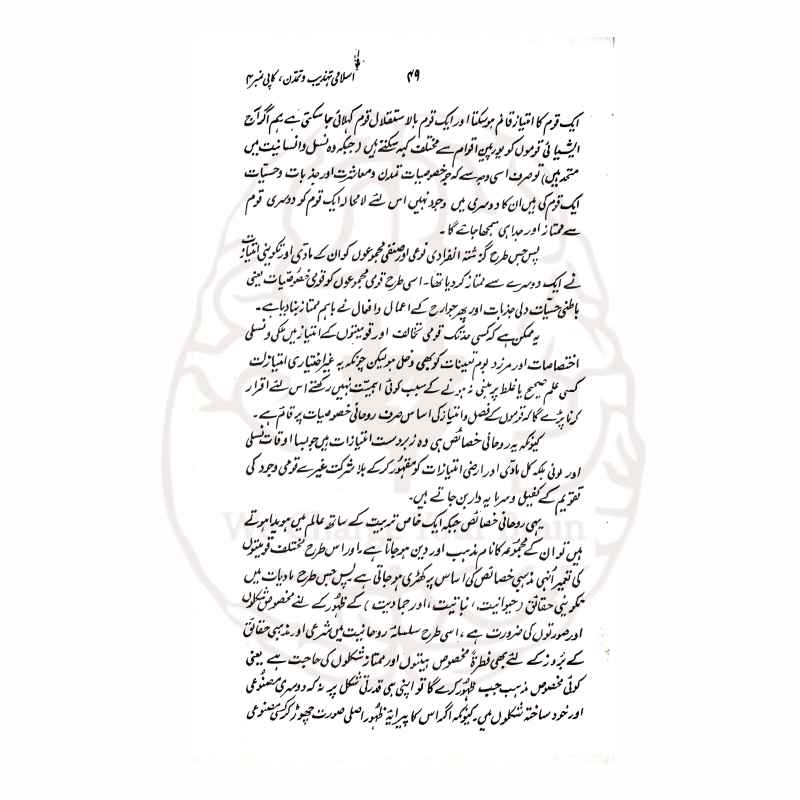 ۴۹ اسلامی تہذیب و تمدن، کاپی نمبر ۴
ایک قوم کا امتیاز قائم ہو سکتا اور ایک قوم بالاستقلال قوم کہلائی جا سکتی ہے ہم اگر آج
ایشیائی قوموں کو یورپین اقوام سے مختلف کہہ سکتے ہیں (جبکہ وہ نسل و انسانیت میں
متحد ہیں) تو صرف اسی وجہ سے کہ جو خصوصیات تمدن و معاشرت اور جذبات و حسیّات
ایک قوم کی ہیں ان کا دوسری میں وجود نہیں اس لئے لامحالہ ایک قوم کو دوسری قوم
سے ممتاز اور جدا ہی سمجھا جائے گا۔
پس جس طرح گزشتہ انفرادی نوعی اور صنفی مجموعوں کو ان کے مادّی اور تکوینی امتیازات
نے ایک دوسرے سے ممتاز کر دیا تھا۔ اسی طرح قومی مجموعوں کو قومی خصوصیّات یعنی
باطنی حسیّات دلی جذبات اور پھر جوارح کے اعمال و افعال نے باہم ممتاز بنا دیا ہے۔
یہ ممکن ہے کہ کسی حد تک قومی تخالف اور قومیتوں کے امتیاز میں ملکی و نسلی
اختصاصات اور مرز و بوم تعینات کو بھی دخل ہو لیکن چونکہ یہ غیر اختیاری امتیازات
کسی علم صحیح یا غلط پر مبنی نہ ہونے کے سبب کوئی اہمیّت نہیں رکھتے اس لئے اقرار
کرنا پڑے گا کہ قوموں کے فصل و امتیاز کی اساس صرف روحانی خصوصیات پر قائم ہے۔
کیونکہ یہ روحانی خصائص ہی وہ زبردست امتیازات ہیں جو بسا اوقات نسلی
اور لونی بلکہ کل مادّی اور ارضی امتیازات کو مقہُور کر کے بلا شرکت غیرے قومی وجود کی
تقویم کے کفیل و سرمایہ دار بن جاتے ہیں۔
یہی روحانی خصائص جبکہ ایک خاص تربیت کے ساتھ عالم میں ہویدا ہوتے
ہیں تو ان کے مجموعہ کا نام مذہب اور دین ہو جاتا ہے۔ اور اس طرح مختلف قومیتوں
کی تعمیر اُنہی مذہبی خصائص کی اساس پر کھڑی ہو جاتی ہے پس جس طرح مادیات میں
تکوینی حقائق (حیوانیت، نباتیت، اور جمادیت) کے ظہُور کے لئے مخصوص شکلوں
اور صورتوں کی ضرورت ہے، اسی طرح سلسلۂ روحانیت میں شرعی اور مذہبی حقائق
کے بُروز کے لئے بھی فطرۃً مخصوص ہیئتوں اور ممتاز شکلوں کی حاجت ہے یعنی
کوئی مخصوص مذہب جب ظہُور کرے گا تو اپنی ہی قدرتی شکل پر نہ کہ دوسری مصنُوعی
اور خود ساختہ شکلوں میں۔ کیونکہ اگر اس کا پیرایۂ ظہُور اصلی صورت چھوڑ کر کسی مصنوعی